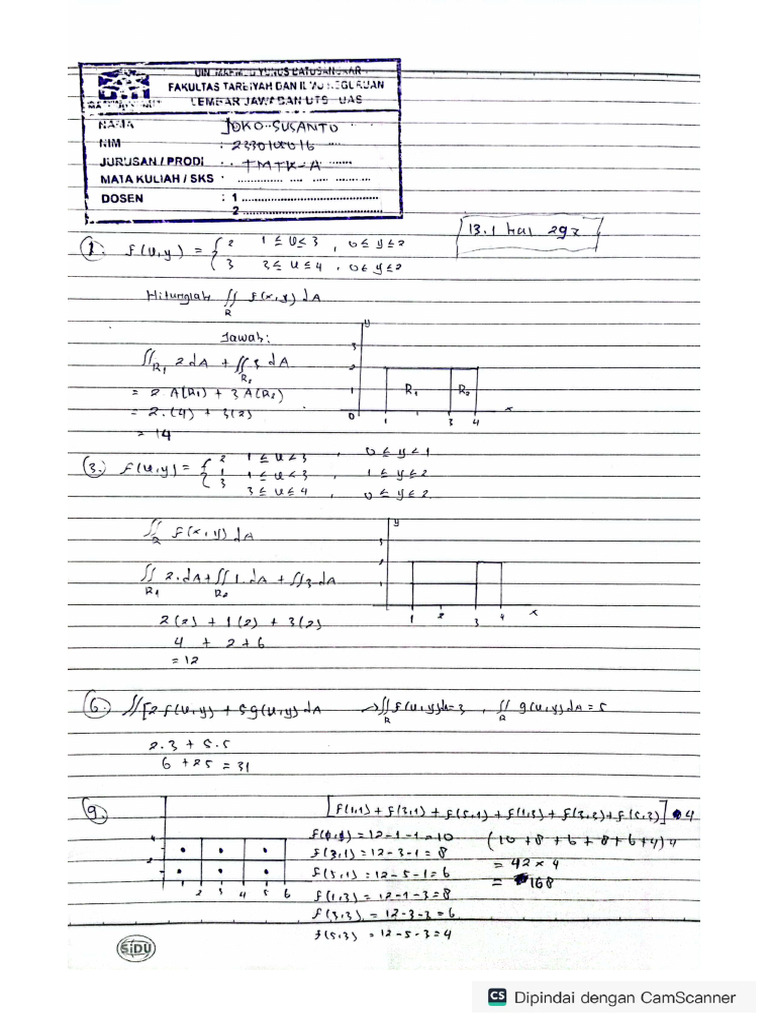 UIN MAHMUD YUNUS BATUSANGKAR
FAKULTAS TARBIYAH DAN ILMU KEGURUAN
LEMBAR JAWABAN UTS - UAS
NAMA : JOKO SUSANTO
NIM :
JURUSAN / PRODI : TMTK-A
MATA KULIAH / SKS :
DOSEN : 1
2
13.1 hal 292
1. f(u,y) = { 2 1 ≤ u ≤ 3 , 0 ≤ y ≤ 2
3 3 ≤ u ≤ 4 , 0 ≤ y ≤ 2
Hitunglah ∬R f(x,y) dA
Jawab:
∬R1 2 dA + ∬R2 3 dA
= 2 A(R1) + 3 A(R2)
= 2.(4) + 3(2)
= 14
y
3
2
1 R1 R2
0 1 3 4 x
3. f(u,y) = { 2 1 ≤ u ≤ 3 , 0 ≤ y ≤ 1
1 1 ≤ u ≤ 3 , 1 ≤ y ≤ 2
3 3 ≤ u ≤ 4 , 0 ≤ y ≤ 2
∬R f(x,y) dA
∬R1 2.dA + ∬R2 1.dA + ∬ 3 dA
2(2) + 1(2) + 3(2)
4 + 2 + 6
= 12
y
1 2 3 4 x
6. ∬[2 f(u,y) + 5 g(u,y) dA → ∬R f(u,y) = 3 , ∬R g(u,y) dA = 5
2.3 + 5.5
6 + 25 = 31
9. [f(1,1) + f(3,1) + f(5,1) + f(1,3) + f(3,3) + f(5,3)] 4
f(1,1) = 12-1-1 = 10
f(3,1) = 12-3-1 = 8
f(5,1) = 12-5-1 = 6
f(1,3) = 12-1-3 = 8
f(3,3) = 12-3-3 = 6
f(5,3) = 12-5-3 = 4
(10 + 8 + 6 + 8 + 6 + 4) 4
= 42 x 4
= 168
4
2
1 2 3 4 5 6
SiDU
CS Dipindai dengan CamScanner